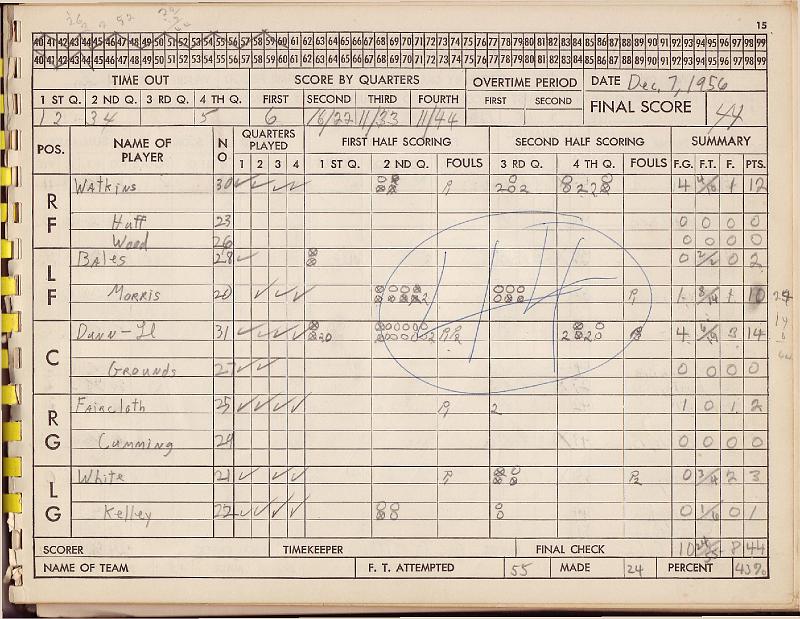 15
40 41 42 43 44 45 46 47 48 49 50 51 52 53 54 55 56 57 58 59 60 61 62 63 64 65 66 67 68 69 70 71 72 73 74 75 76 77 78 79 80 81 82 83 84 85 86 87 88 89 90 91 92 93 94 95 96 97 98 99
40 41 42 43 44 45 46 47 48 49 50 51 52 53 54 55 56 57 58 59 60 61 62 63 64 65 66 67 68 69 70 71 72 73 74 75 76 77 78 79 80 81 82 83 84 85 86 87 88 89 90 91 92 93 94 95 96 97 98 99
TIME OUT SCORE BY QUARTERS OVERTIME PERIOD DATE Dec, 7, 1956
1 ST Q. 2 ND Q. 3 RD Q. 4 TH Q. FIRST SECOND THIRD FOURTH FIRST SECOND FINAL SCORE 44
1 2 3 4 5 6 16/22 11/33 11/44
POS. NAME OF PLAYER NO QUARTERS PLAYED FIRST HALF SCORING SECOND HALF SCORING SUMMARY
1 2 3 4 1 ST Q. 2 ND Q. FOULS 3 RD Q. 4 TH Q. FOULS F.G. F.T. F. PTS.
RF Watkins 30 P1 202 4 1 12
Huff 23 0 0 0 0
Wood 26 0 0 0 0
LF Bales 28 0 0 2
Morris 20 P1 1 1 10
C Dunn-Il 31 4 3 14
Grounds 27 0 0 0 0
RG Faircloth 25 P1 2 1 0 1 2
Cumming 24 0 0 0 0
LG White 21 P1 P2 0 3/4 2 3
Kelley 22 0 1/6 0 1
44
SCORER TIMEKEEPER FINAL CHECK 10 8 44
NAME OF TEAM F. T. ATTEMPTED 55 MADE 24 PERCENT 43%